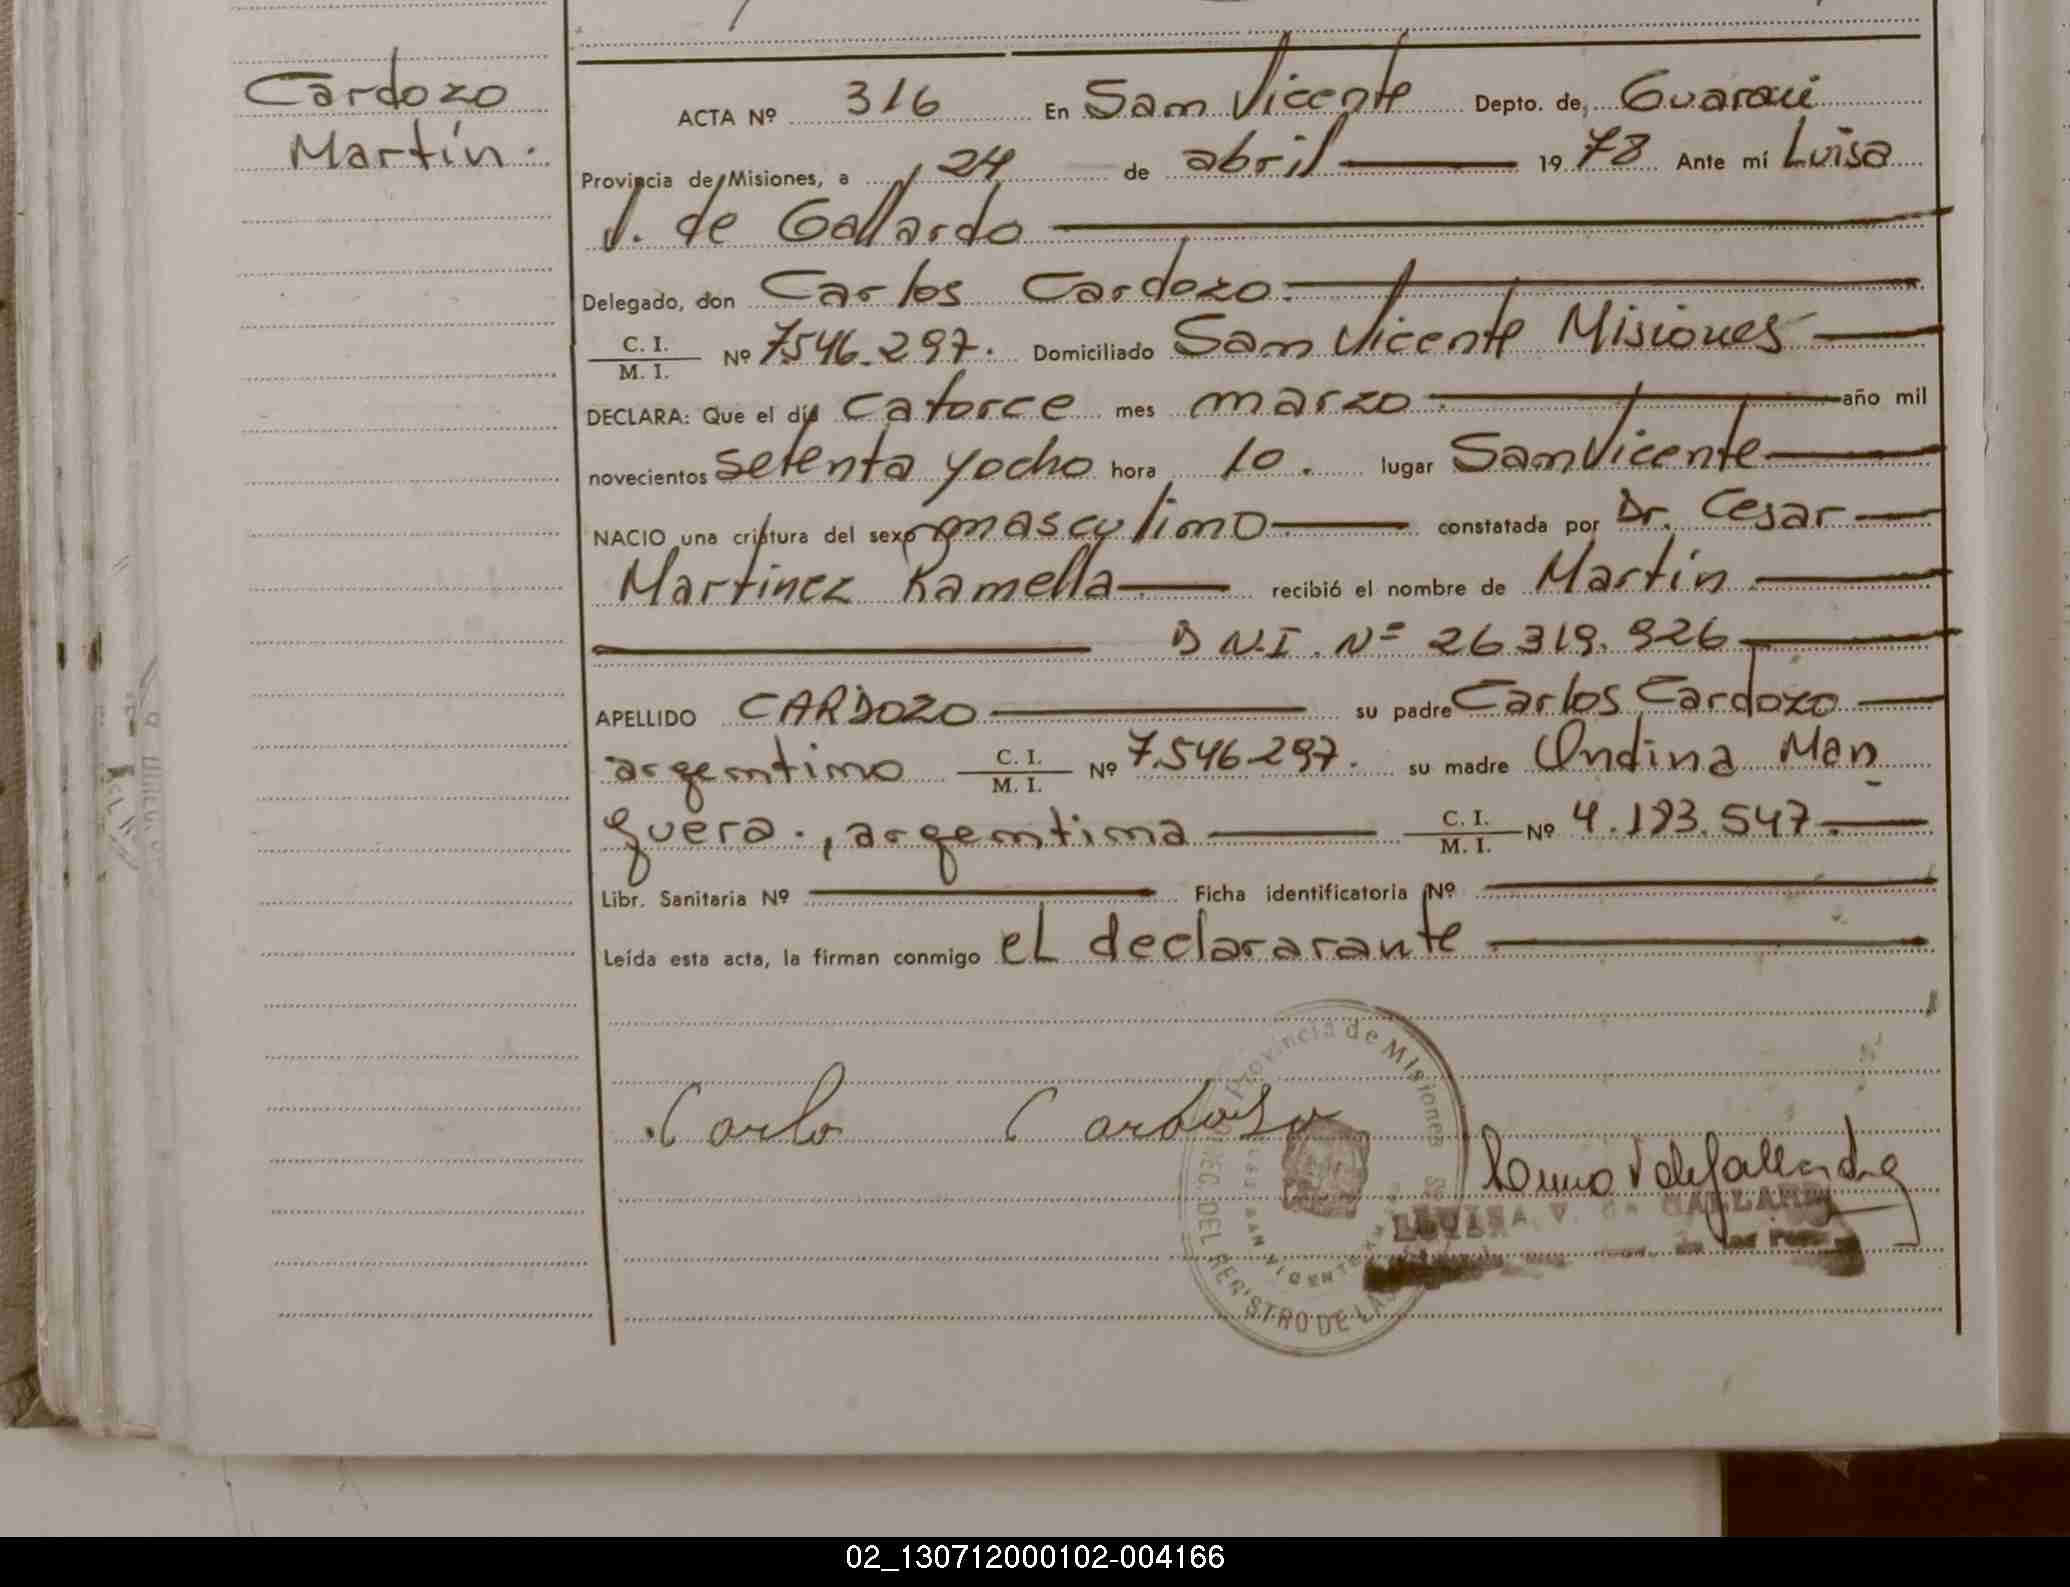 Cardozo
Martín.
ACTA Nº 316 En San Vicente Depto. de, Guaraní
Provincia de Misiones, a 24 de abril 19 78 Ante mí Luisa
V. de Gallardo
Delegado, don Carlos Cardozo.
C. I.
M. I. Nº 7.546.297. Domiciliado San Vicente Misiones
DECLARA: Que el día catorce mes marzo año mil
novecientos setenta y ocho hora 10. lugar San Vicente
NACIO una criatura del sexo masculino constatada por Dr. Cesar
Martinez Ramella recibió el nombre de Martín
D N.I. Nº 26.319.926
APELLIDO CARDOZO su padre Carlos Cardozo
argentino C. I.
M. I. Nº 7.546.297. su madre Ondina Man
guera., argentina C. I.
M. I. Nº 4.193.547.
Libr. Sanitaria Nº Ficha identificatoria Nº
Leída esta acta, la firman conmigo el declararante
Carlo Cardoso
Provincia de Misiones
DEL REGISTRO DE LAS
SAN VICENTE
LUISA V. de GALLARDO
de las Pers
02_130712000102-004166